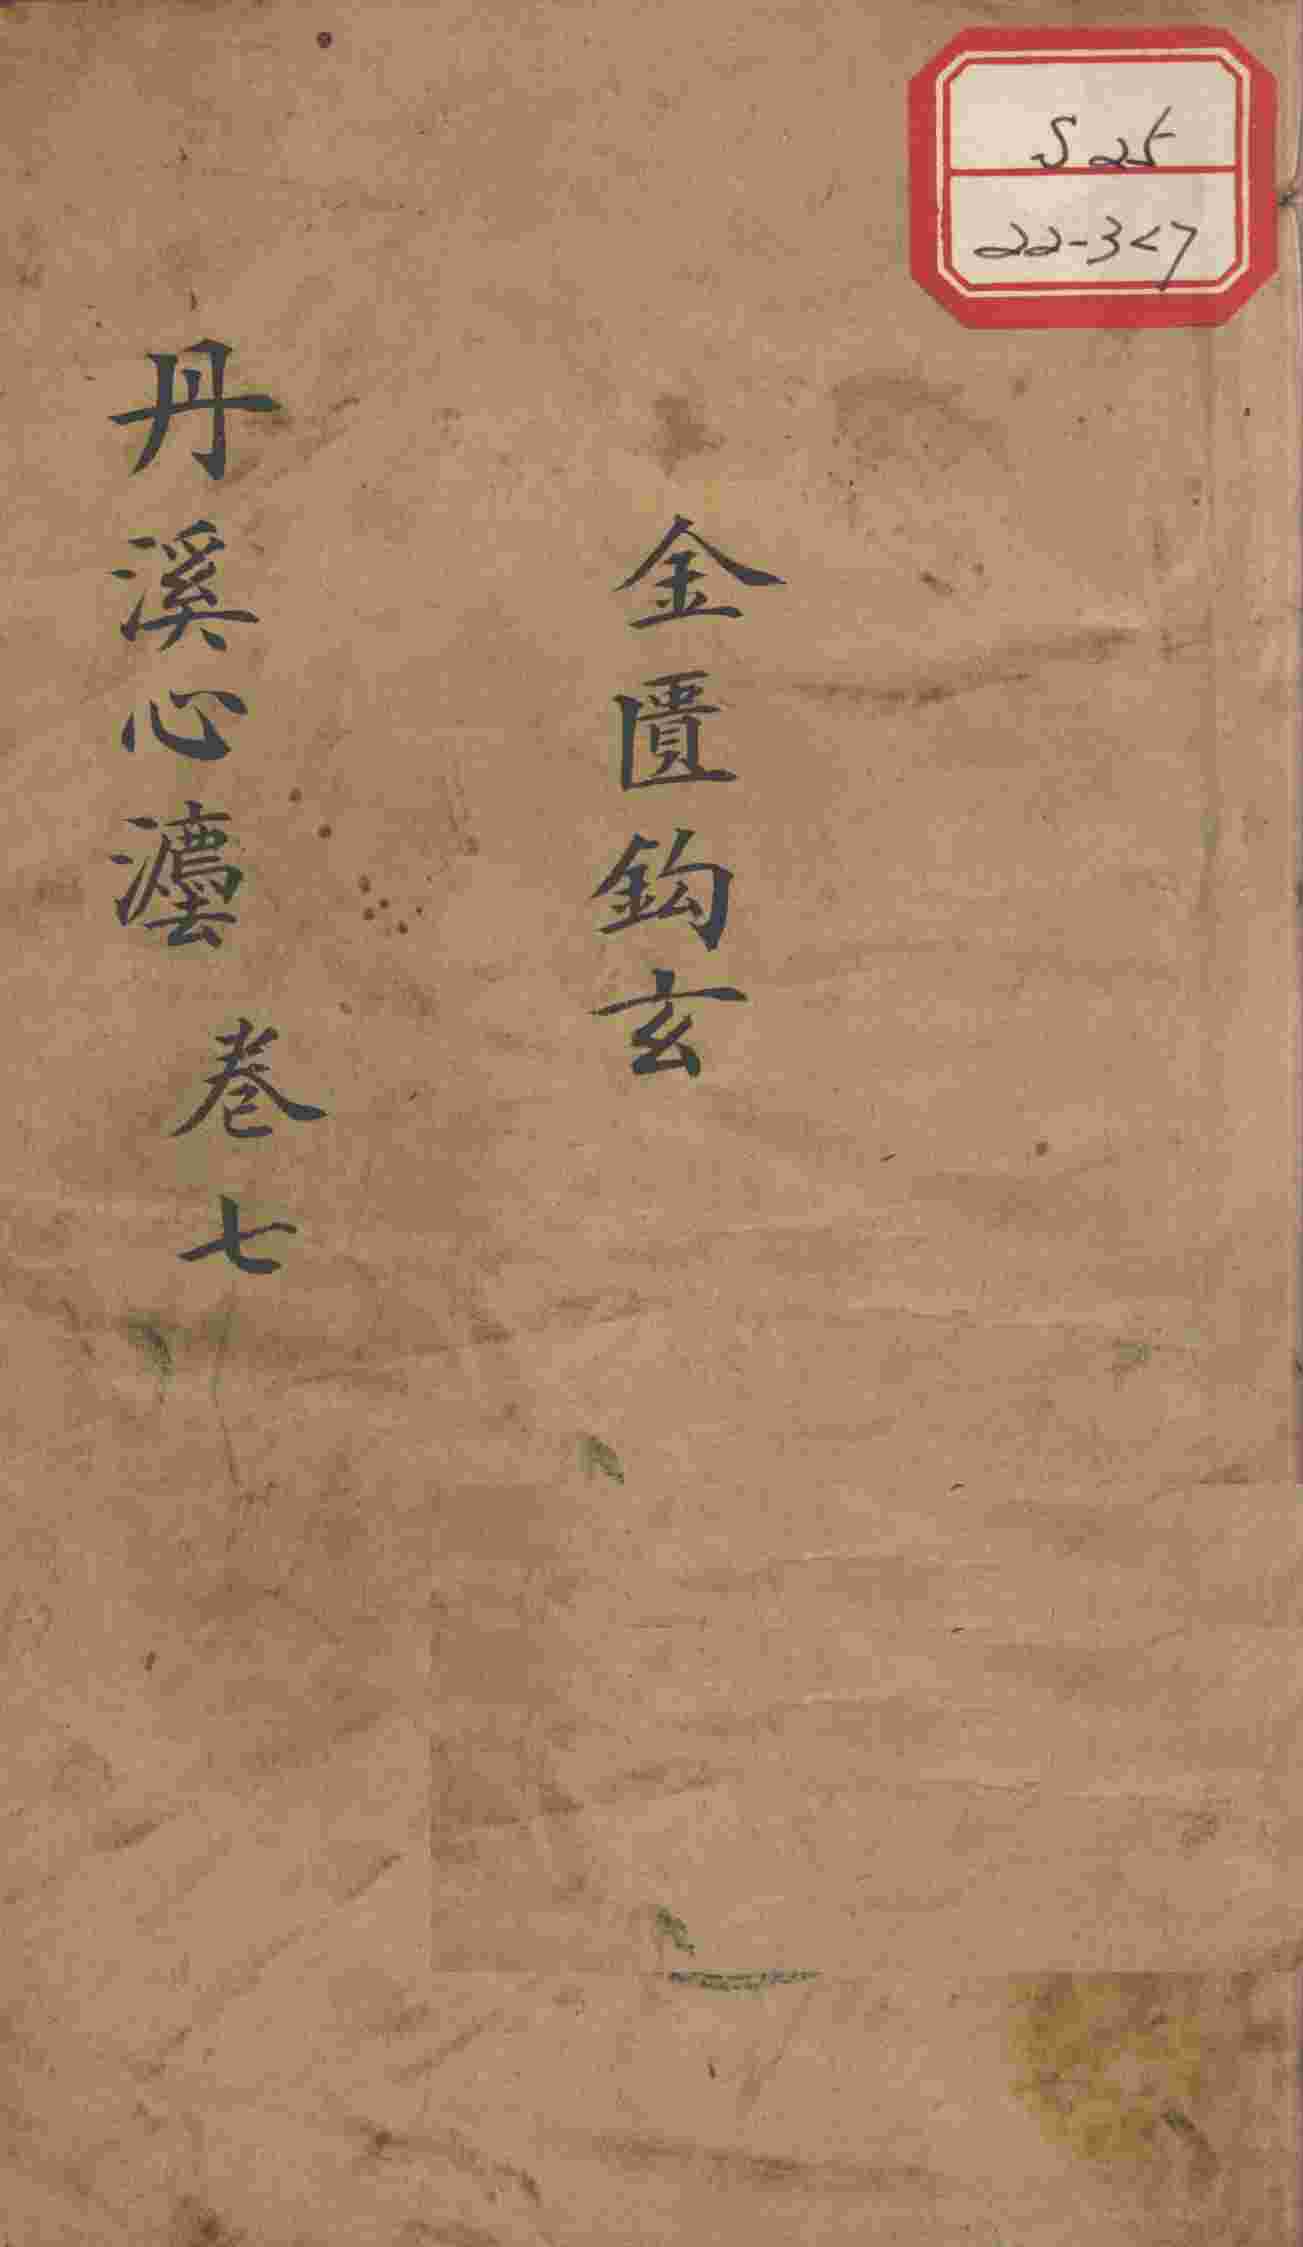 S25
22-3<7
金匱鈎玄
丹溪心灋 卷七